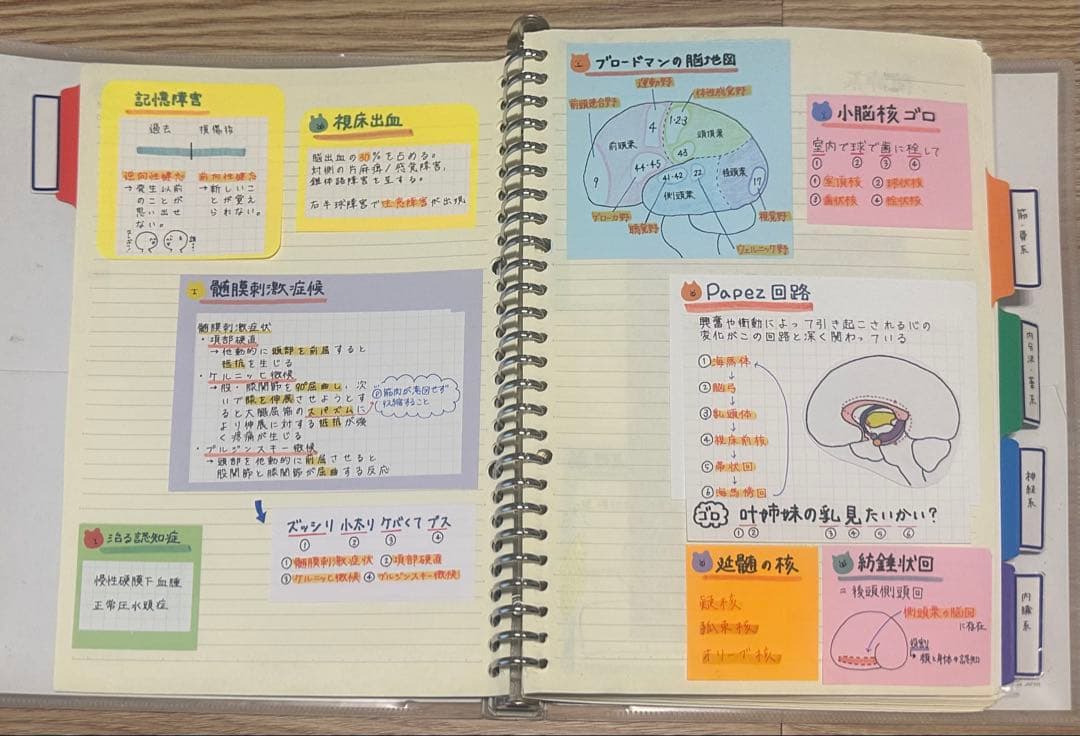 記憶障害
過去 損傷後
逆向性健忘
→発生以前
のことが
思い出せ
ない。
前向性健忘
→新しいこ
とが覚え
られない。
視床出血
脳出血の30%を占める。
対側の片麻痺/感覚障害,
錐体路障害を呈する。
右半球障害で注意障害が出現
髄膜刺激症候
髄膜刺激症状
・項部硬直
→他動的に頭部を前屈すると
抵抗を生じる
・ケルニッヒ徴候
→股・膝関節を90°屈曲し、次
いで膝を伸展させようとす
ると大腿屈筋のスパズムに
より伸展に対する抵抗が強
く疼痛が生じる
筋肉が意図せず
収縮すること
・ブルジンスキー徴候
→頭部を他動的に前屈させると
股関節と膝関節が屈曲する反応
ズッシリ 小太り ケバくて ブス
① ② ③ ④
①髄膜刺激症状 ②項部硬直
③ケルニッヒ徴候 ④ブルジンスキー徴候
治る認知症
慢性硬膜下血腫
正常圧水頭症
ブロードマンの脳地図
運動野
前頭連合野
体性感覚野
4
1・2・3
前頭葉
頭頂葉
43
44・45
41・42
22
9
側頭葉
後頭葉
17
ブローカ野
聴覚野
視覚野
ウェルニッケ野
小脳核 ゴロ
室内で球で歯に栓して
① ② ③ ④
①室頂核 ②球状核
③歯状核 ④栓状核
Papez回路
興奮や衝動によって引き起こされる心の
変化がこの回路と深く関わっている
①海馬体
↓
②脳弓
↓
③乳頭体
↓
④視床前核
↓
⑤帯状回
↓
⑥海馬傍回
ゴロ 叶姉妹の乳見たいかい?
① ② ③ ④ ⑤ ⑥
延髄の核
疑核
孤束核
オリーブ核
紡錘状回
=後頭側頭回
側頭葉の脳回
に存在
役割
→顔と身体の認知
筋・骨系
神経系
内臓系